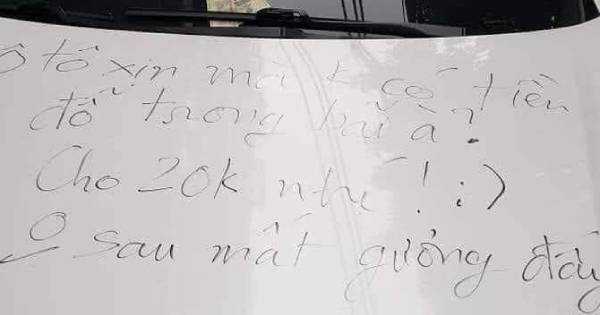 ô tô xịn mà k có tiền
đỗ trong bãi à?
Cho 20k nhé! :)
sau mất gương đấy